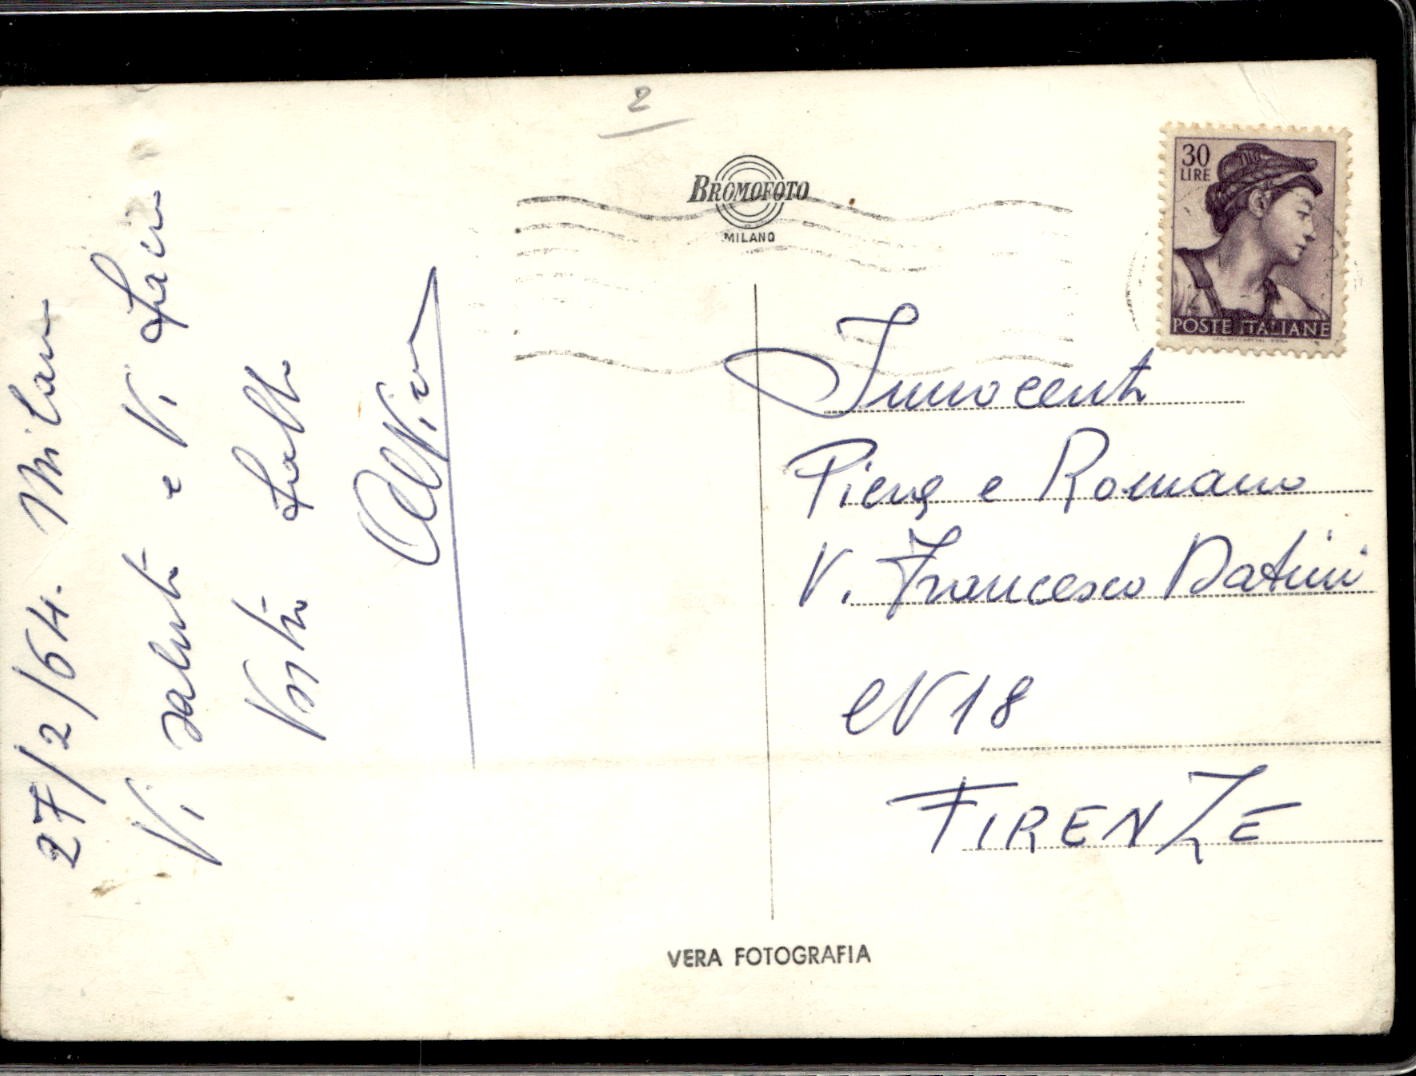 2
BROMOFOTO
MILANO
30
LIRE
POSTE ITALIANE
27/2/64. Milano
Vi saluto e Vi bacio
Vostro
Innocenti
Piera e Romano
V. Francesco Datini
N 18
FIRENZE
VERA FOTOGRAFIA